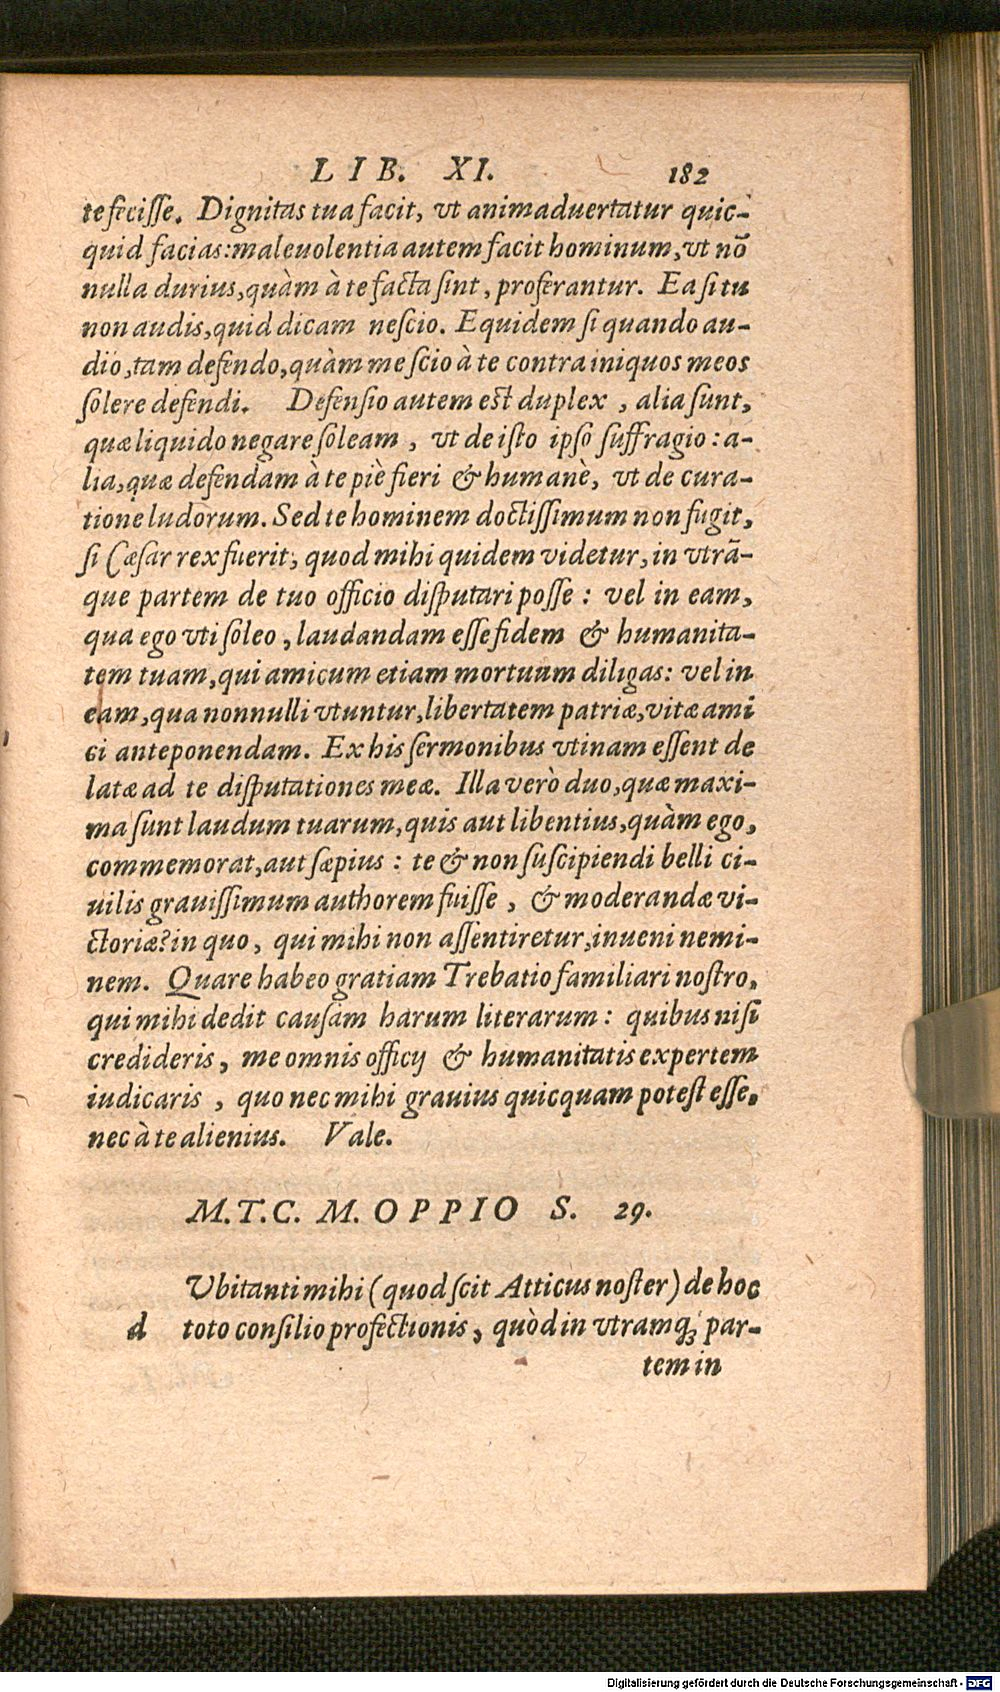 LIB. XI. 182
te fecisse. Dignitas tua facit, vt animaduertatur quic-
quid facias: maleuolentia autem facit hominum, vt nõ
nulla durius, quàm à te facta sint, proferantur. Ea si tu
non audis, quid dicam nescio. Equidem si quando au-
dio, tam defendo, quàm me scio à te contra iniquos meos
solere defendi. Defensio autem est duplex, alia sunt,
quæ liquido negare soleam, vt de isto ipso suffragio: a-
lia, quæ defendam à te piè fieri & humanè, vt de cura-
tione ludorum. Sed te hominem doctissimum non fugit,
si Cæsar rex fuerit, quod mihi quidem videtur, in vtrã-
que partem de tuo officio disputari posse: vel in eam,
qua ego vti soleo, laudandam esse fidem & humanita-
tem tuam, qui amicum etiam mortuum diligas: vel in
eam, qua nonnulli vtuntur, libertatem patriæ, vitæ ami
ci anteponendam. Ex his sermonibus vtinam essent de
latæ ad te disputationes meæ. Illa verò duo, quæ maxi-
ma sunt laudum tuarum, quis aut libentius, quàm ego,
commemorat, aut sæpius: te & non suscipiendi belli ci-
uilis grauissimum authorem fuisse, & moderandæ vi-
ctoriæ? in quo, qui mihi non assentiretur, inueni nemi-
nem. Quare habeo gratiam Trebatio familiari nostro,
qui mihi dedit causam harum literarum: quibus nisi
credideris, me omnis officij & humanitatis expertem
iudicaris, quo nec mihi grauius quicquam potest esse,
nec à te alienius. Vale.
M.T.C. M. OPPIO S. 29.
Vbitanti mihi (quod scit Atticus noster) de hoc
d toto consilio profectionis, quòd in vtramq; par-
tem in
Digitalisierung gefördert durch die Deutsche Forschungsgemeinschaft - DFG